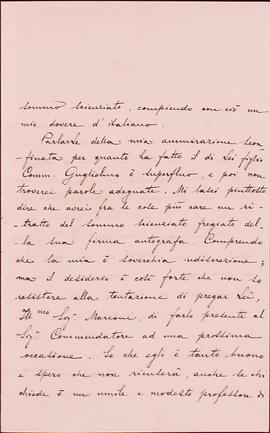 sommo scienziato, compiendo con ciò un
mio dovere d'italiano.
Parlarle della mia ammirazione scon-
finata per quanto ha fatto il di Lei figlio
Comm. Guglielmo è superfluo, e poi non
troverei parole adeguate. Mi lasci piuttosto
dire che avrei fra le cose più care un ri-
tratto del sommo scienziato fregiato del-
la sua firma autografa. Comprendo
che la mia è soverchia indiscrezione;
ma il desiderio è così forte che non so
resistere alla tentazione di pregar Lei,
Ill.mo Sig. Marconi, di farlo presente al
Sig. Commendatore ad una prossima
occasione. So che egli è tanto buono
e spero che non rifiuterà, anche se chi
chiede è un umile e modesto professore di